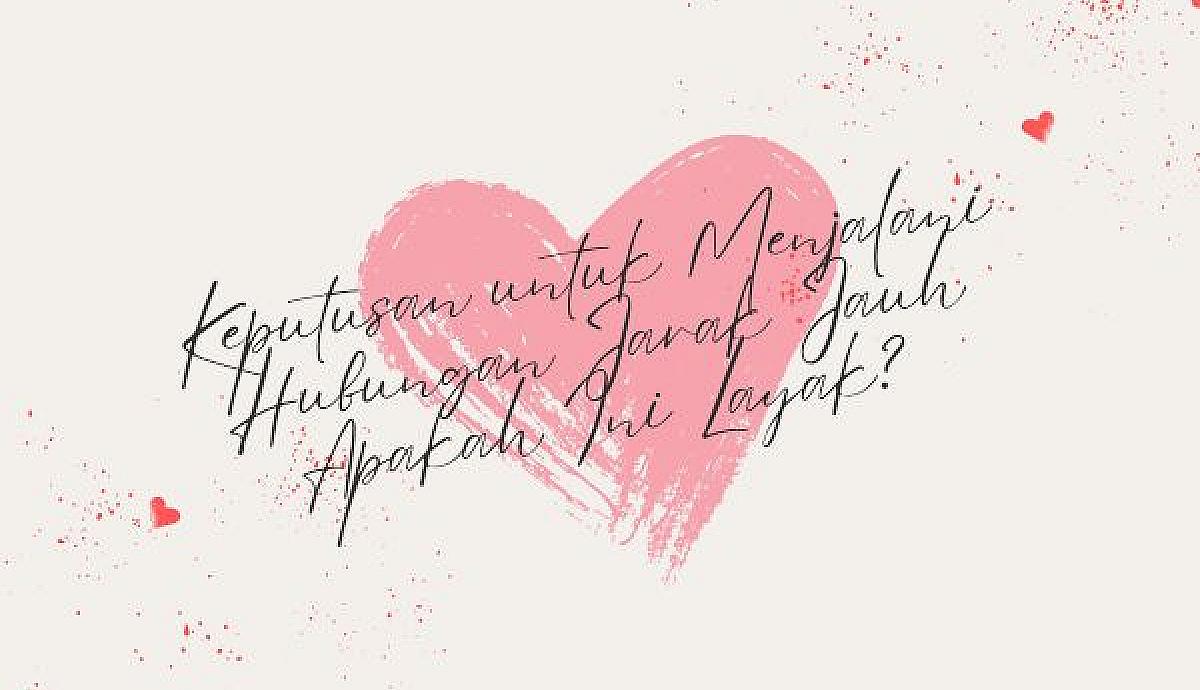 Keputusan untuk Menjalani
Hubungan Jarak Jauh
Apakah Ini Layak?